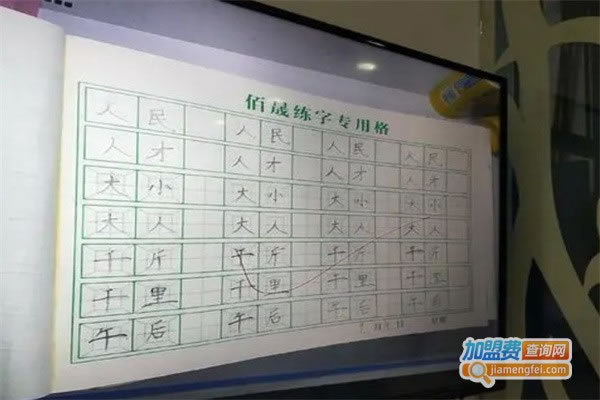 佰晟练字专用格
人民 人民 人民 人民
人才 人才 人才 人才
大小 大小 大小 大小
大人 大人 大人 大人
千斤 千斤 千斤 千斤
千里 千里 千里 千里
午后 午后 午后 午后
加盟费查询网
jiamengfei.com